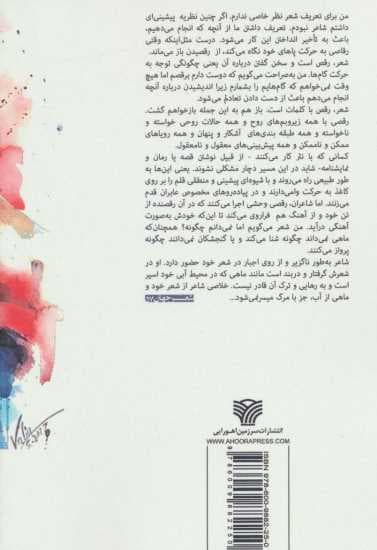 من برای تعریف شعر نظر خاصی ندارم. اگر چنین نظریه پیشینی‌ای
داشتم شاعر نبودم. تعریف داشتن ما از آنچه که انجام می‌دهیم،
باعث به تأخیر انداختن این کار می‌شود. درست مثل‌اینکه وقتی
رقاصی به حرکت پاهای خود نگاه می‌کند، از رقصیدن باز می‌ماند.
شعر، رقص است و سخن گفتن درباره آن یعنی چگونگی توجه به
حرکت گام‌ها. من به‌صراحت می‌گویم که دوست دارم برقصم اما هیچ
وقت نمی‌خواهم که گام‌هایم را بشمارم زیرا اندیشیدن درباره آنچه
انجام می‌دهم باعث از دست دادن تعادلم می‌شود.
شعر، رقص با کلمات است. باز هم به این جمله بازخواهم گشت.
رقصی با همه زیروبم‌های روح و همه حالات روحی خواسته و
ناخواسته و همه طبقه بندی‌های آشکار و پنهان و همه رویاهای
ممکن و ناممکن و همه پیش‌بینی‌های معقول و نامعقول.
کسانی که با نثر کار می‌کنند - از قبیل نوشتن قصه یا رمان و
نمایشنامه- شاید در این مسیر دچار مشکلی نشوند. یعنی این‌ها به
طور طبیعی راه می‌روند و با شیوه‌ای پیشینی و منطقی قلم را بر روی
کاغذ به حرکت وامی‌دارند و در پیاده‌روهای مخصوص عابران قدم
می‌زنند. اما شاعران، رقصی وحشی اجرا می‌کنند که در آن رقصنده از
تن خود و از آهنگ هم فراروی می‌کند تا این‌که خودش به‌صورت
آهنگی درآید. من شعر می‌گویم اما نمی‌دانم چگونه؟ همچنان‌که
ماهی نمی‌داند چگونه شنا می‌کند و یا گنجشکان نمی‌دانند چگونه
پرواز می‌کنند.
شاعر به‌طور ناگزیر و از روی اجبار در شعر خود حضور دارد. او در
شعرش گرفتار و دربند است مانند ماهی که در محیط آبی خود اسیر
است و به رهایی و ترک آن قادر نیست. خلاصی شاعر از شعر خود و
ماهی از آب، جز با مرگ میسر نمی‌شود...
شعر جهان/۹۷
انتشارات سرزمین اهورایی
WWW.AHOORAPRESS.COM